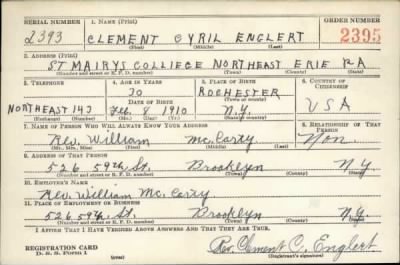 SERIAL NUMBER 1. NAME (Print) ORDER NUMBER
2393 CLEMENT CYRIL ENGLERT 2395
(First) (Middle) (Last)
2. ADDRESS (Print)
ST MARYS COLLIEGE NORTHEAST ERIE PA
(Number and street or R. F. D. number) (Town) (County) (State)
3. TELEPHONE 4. AGE IN YEARS 5. PLACE OF BIRTH 6. COUNTRY OF CITIZENSHIP
30 ROCHESTER
DATE OF BIRTH (Town or county)
NORTHEAST 143 Feb. 8 1910 N.Y. USA
(Mo.) (Day) (Yr.) (State or country)
7. NAME OF PERSON WHO WILL ALWAYS KNOW YOUR ADDRESS 8. RELATIONSHIP OF THAT PERSON
Rev. William Mc. Carty Non.
(Mr., Mrs., Miss) (First) (Middle) (Last)
9. ADDRESS OF THAT PERSON
526 59th St. Brooklyn N.Y.
(Number and street or R. F. D. number) (Town) (County) (State)
10. EMPLOYER'S NAME
Rev. William Mc. Carty
11. PLACE OF EMPLOYMENT OR BUSINESS
526 59th St. Brooklyn N.Y.
(Number and street or R. F. D. number) (Town) (County) (State)
I AFFIRM THAT I HAVE VERIFIED ABOVE ANSWERS AND THAT THEY ARE TRUE.
REGISTRATION CARD Rev. Clement C. Englert
D. S. S. Form 1 (over) (Registrant's signature)